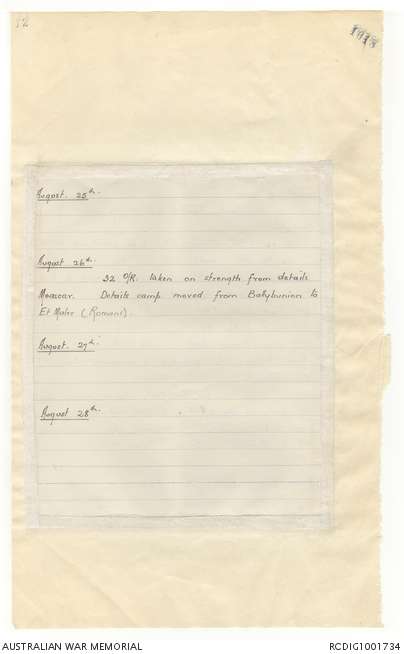 12
1918
August. 25th.
August 26th.
32 O/R. taken on strength from details
Moascar. Details camp moved from Bally bunion to
El Maler (Romani).
August. 27th.
August 28th.
AUSTRALIAN WAR MEMORIAL
RCDIG1001734